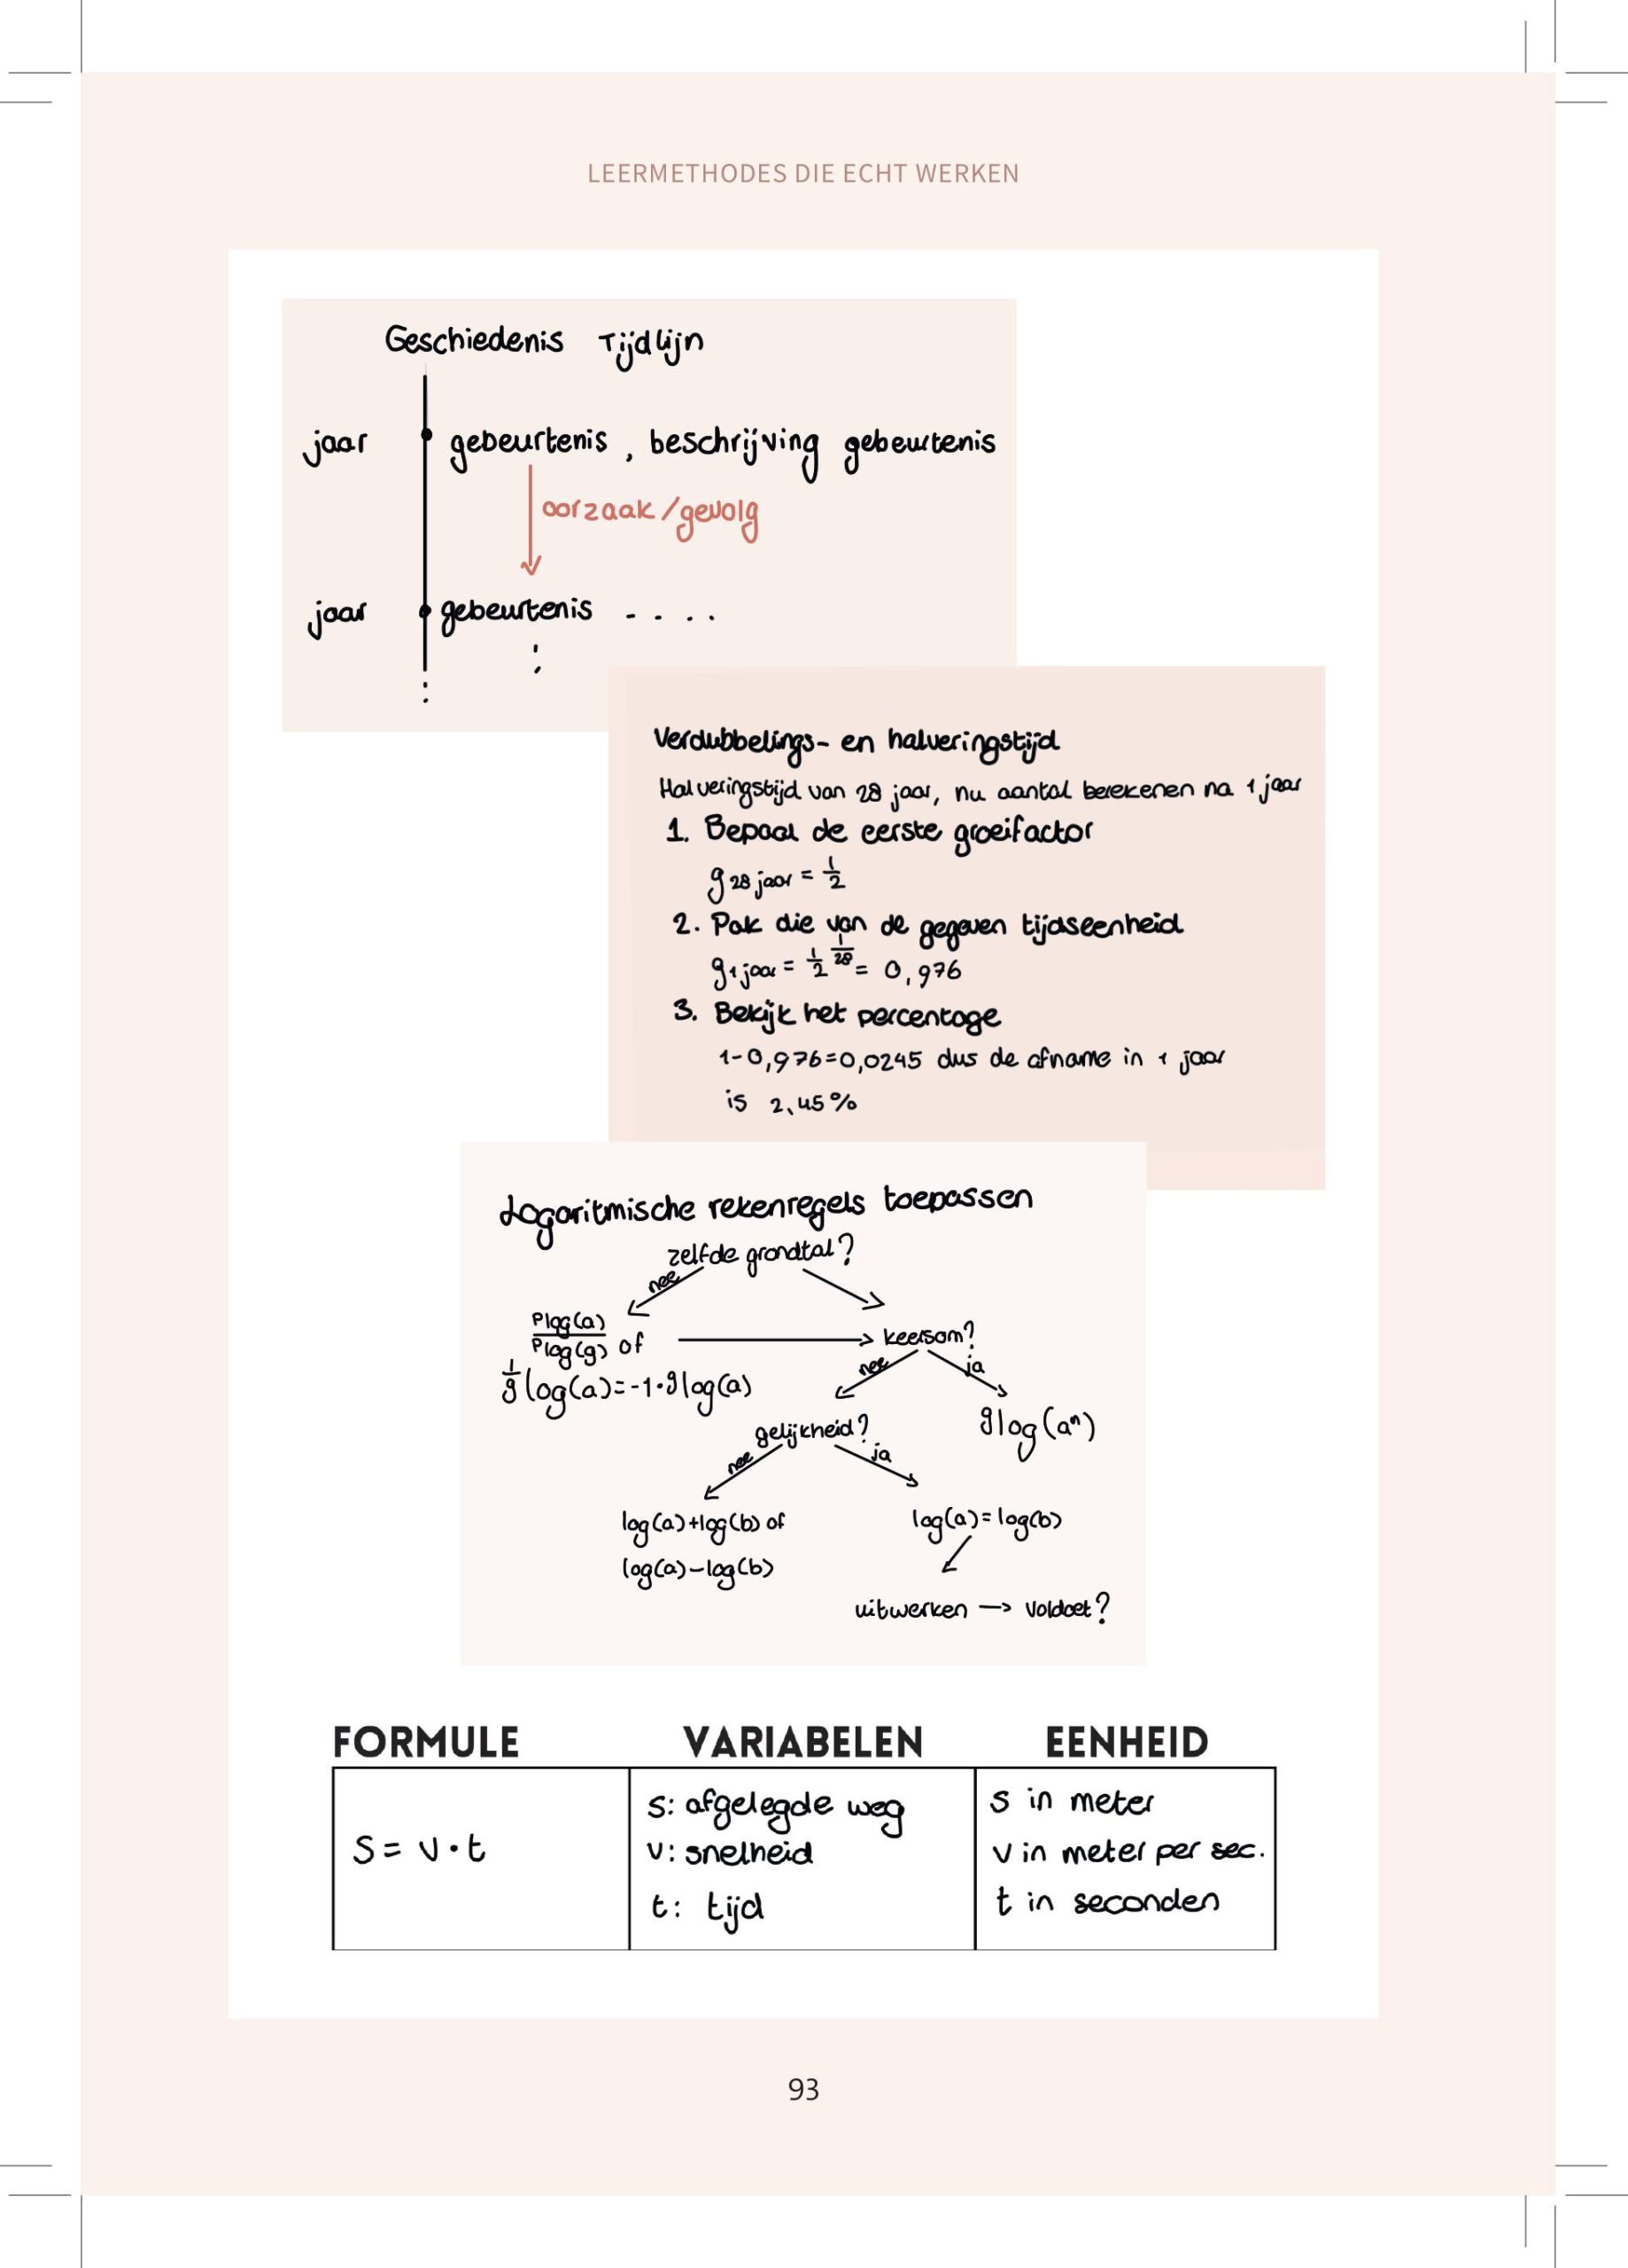 LEERMETHODES DIE ECHT WERKEN
Geschiedenis Tijdlijn
jaar gebeurtenis, beschrijving gebeurtenis
oorzaak/gevolg
jaar gebeurtenis - - . .
Verdubbelings- en halveringstijd
Halveringstijd van 28 jaar, nu aantal berekenen na 1 jaar
1. Bepaal de eerste groeifactor
g 28 jaar = 1/2
2. Pak die van de gegeven tijdseenheid
g 1 jaar = 1/2^(1/28) = 0,976
3. Bekijk het percentage
1-0,976=0,0245 dus de afname in 1 jaar
is 2,45%
Logaritmische rekenregels toepassen
zelfde grondtal?
nee
Plog(a)/Plog(g) of
keersom?
1/g log(a)=-1·glog(a)
nee ja
gelijkheid?
glog(aⁿ)
nee ja
log(a)+log(b) of
log(a)=log(b)
log(a)-log(b)
uitwerken → voldoet?
FORMULE VARIABELEN EENHEID
s = v·t
s: afgelegde weg
v: snelheid
t: tijd
s in meter
v in meter per sec.
t in seconden
93